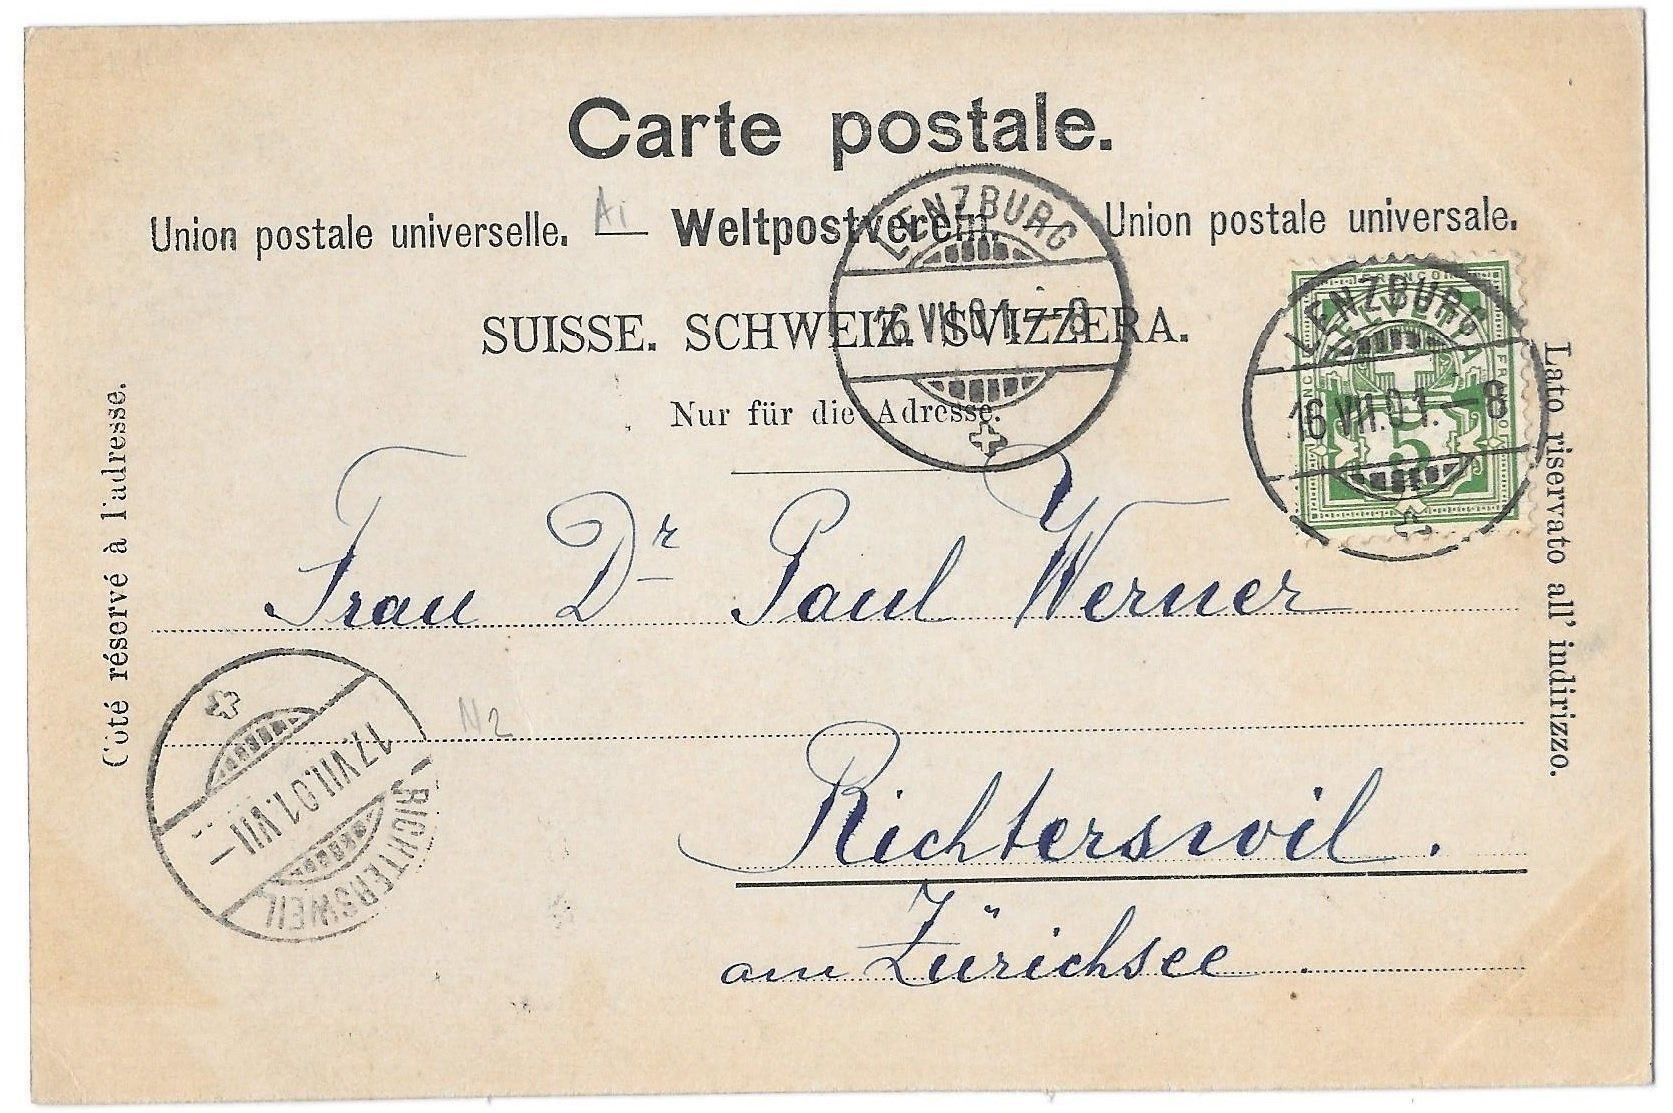 Carte postale.
Union postale universelle. A1 Weltpostverein. Union postale universale.
SUISSE. SCHWEIZ. SVIZZERA.
Nur für die Adresse.
LENZBURG
16.VII.01.–8
LENZBURG
16.VII.01.–8
FRANCO
HELVETIA
5
Côté réservé à l'adresse.
Lato riservato all' indirizzo.
Frau Dr Paul Werner
N2
Richterswil.
am Zürichsee.
17.VII.01.VII–
RICHTERSWEIL